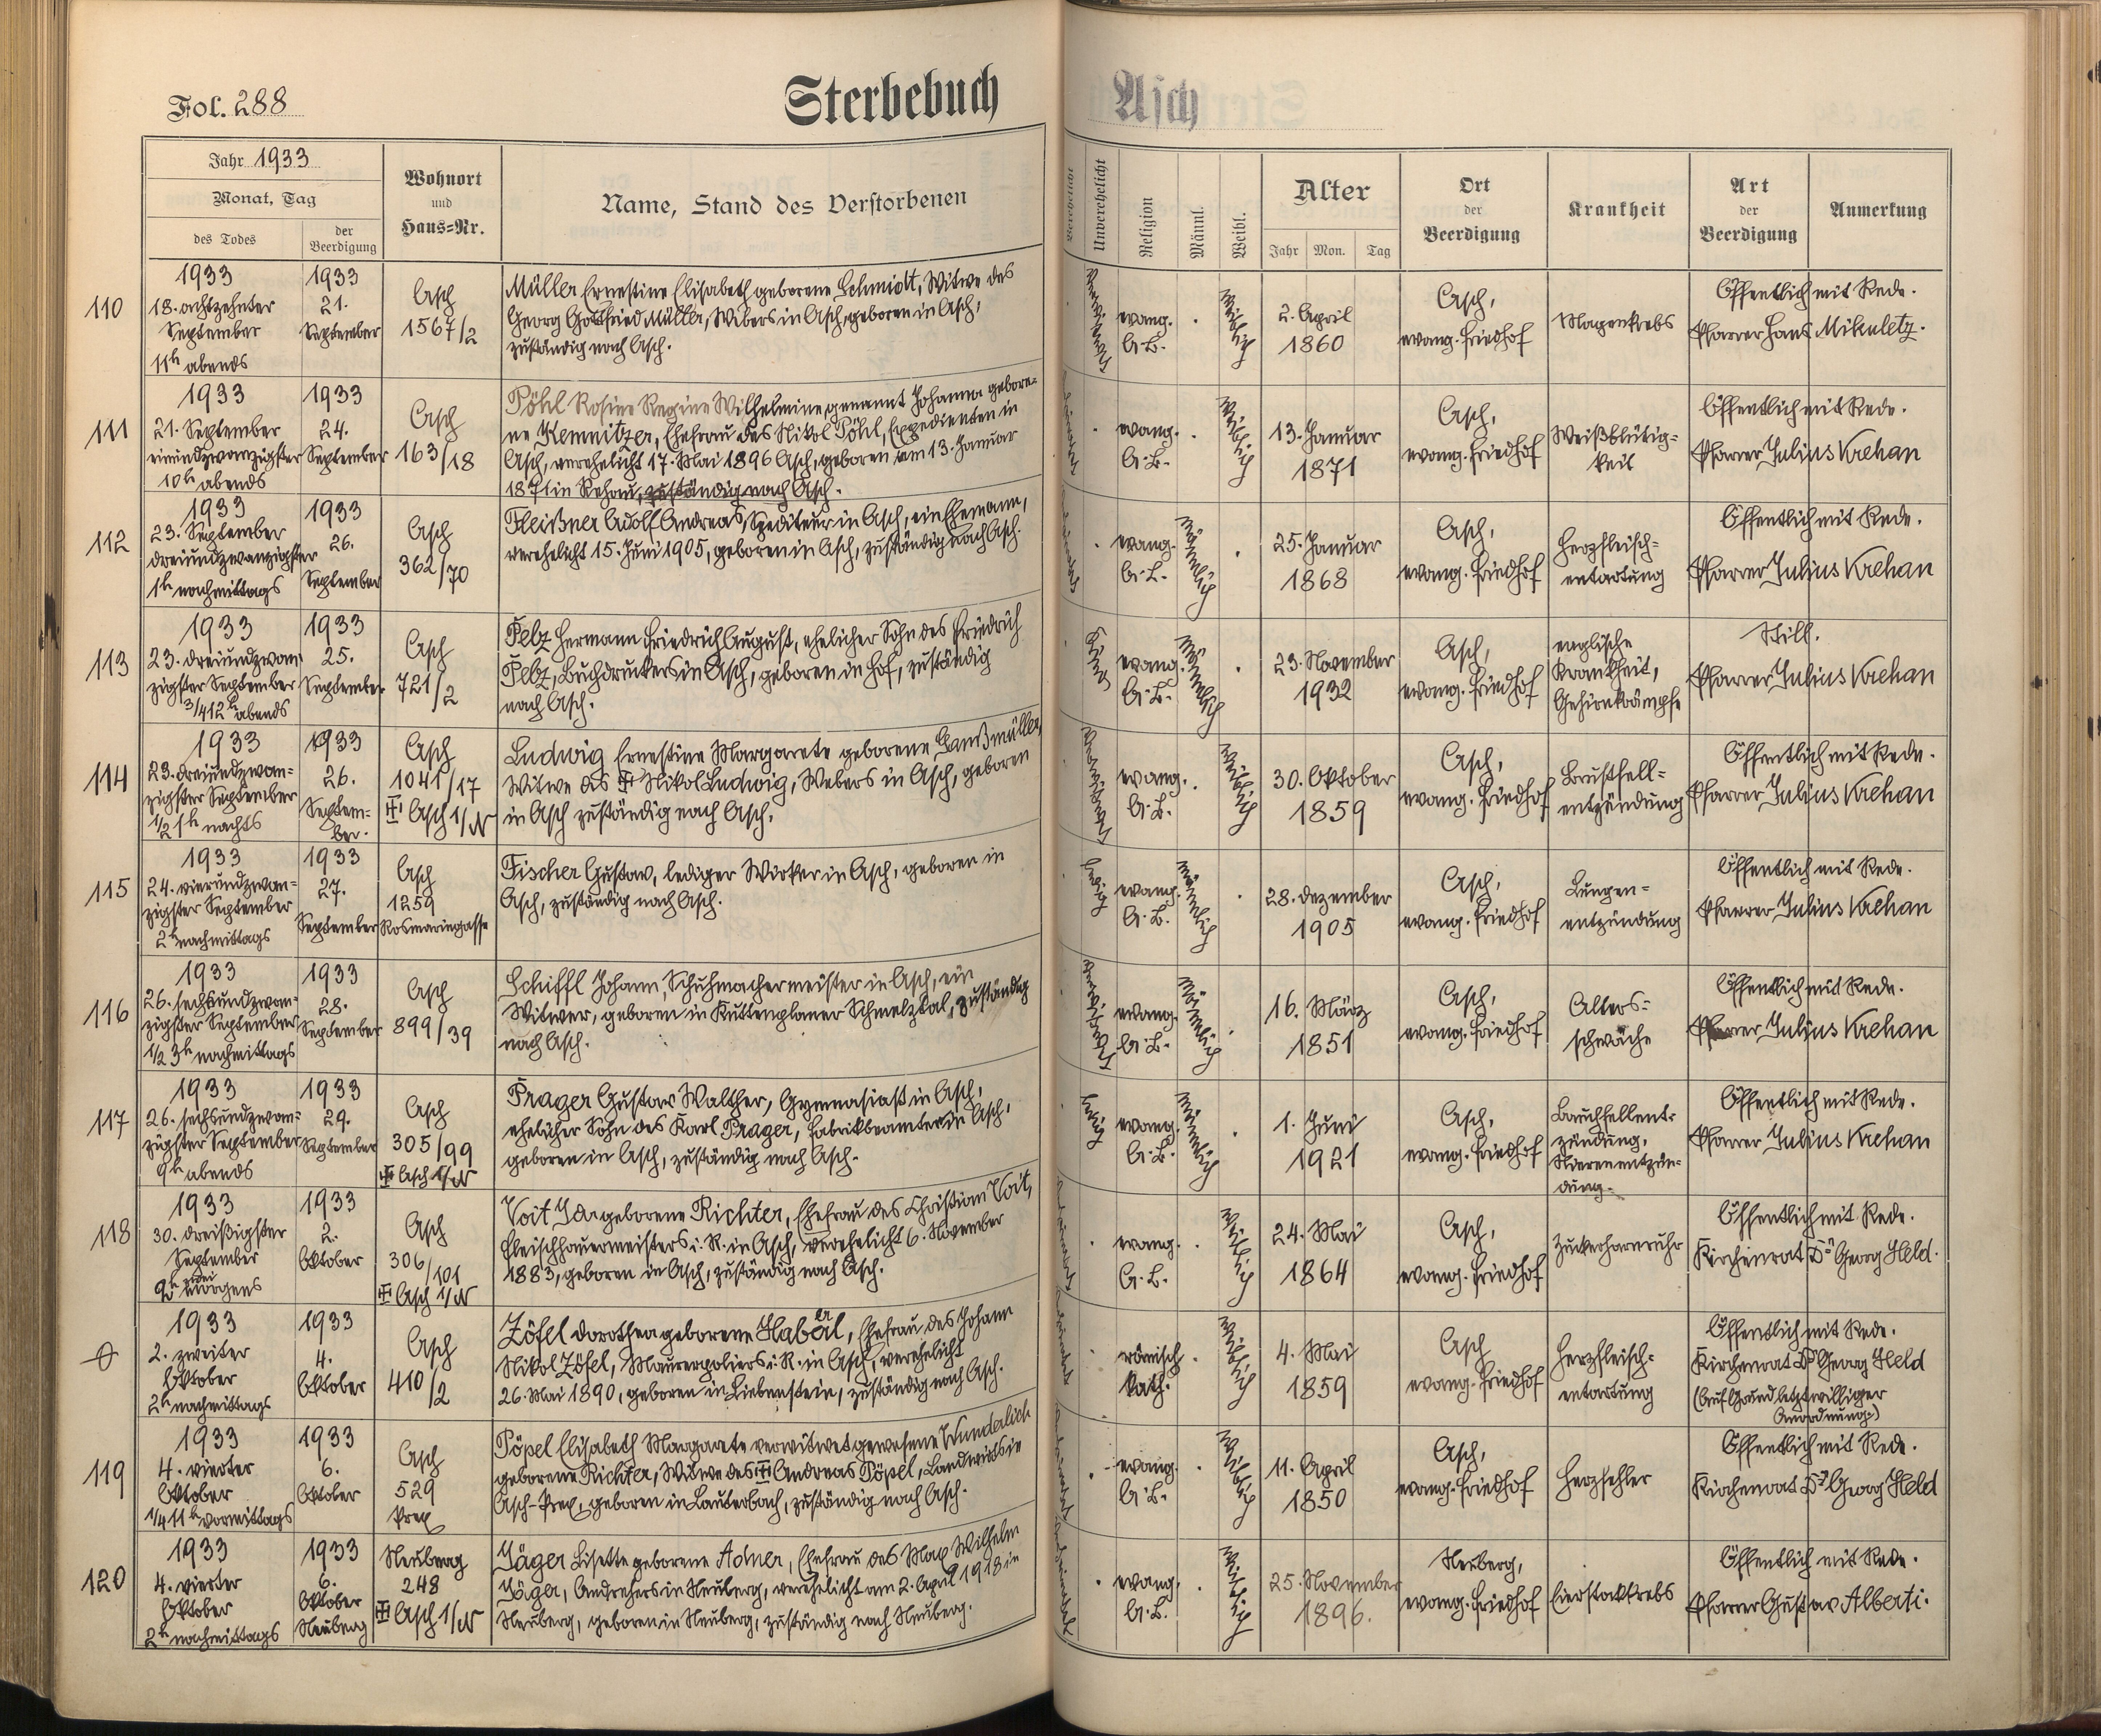 Fol. 288
Sterbebuch
Asch
Jahr 1933
Monat, Tag
des Todes
der Beerdigung
Wohnort
und
Haus=Nr.
Name, Stand des Verstorbenen
Verehelicht
Unverehelicht
Religion
Männl.
Weibl.
Alter
Jahr
Mon.
Tag
Ort
der
Beerdigung
Krankheit
Art
der
Beerdigung
Anmerkung
110
1933
18. achtzehnter
September
11h abends
1933
21.
September
Asch
1567/2
Müller Ernestine Elisabeth geborene Schmidt, Witwe des
Georg Gottfried Müller, Webers in Asch, geboren in Asch,
zuständig nach Asch.
verwitwet
evang.
A.B.
weiblich
2. April
1860
Asch,
evang. Friedhof
Magenkrebs
Öffentlich mit Rede.
Pfarrer Hans Mikuletz.
111
1933
21. September
einundzwanzigster
10h abends
1933
24.
September
Asch
163/18
Pöhl Rosine Regine Wilhelmine, genannt Johanna gebore=
ne Kemnitzer, Ehefrau des Nikol Pöhl, Expedienten in
Asch, verehelicht 17. Mai 1896 Asch, geboren am 13. Januar
1871 in Rehau, zuständig nach Asch.
evang.
A.B.
weiblich
13. Januar
1871
Asch,
evang. Friedhof
Weißblütig=
keit
Öffentlich mit Rede.
Pfarrer Julius Krehan
112
1933
23. September
dreiundzwanzigster
1h nachmittags
1933
26.
September
Asch
362/70
Fleißner Adolf Andreas, Spediteur in Asch, ein Ehemann,
verehelicht 15. Juni 1905, geboren in Asch, zuständig nach Asch.
evang.
A.B.
männlich
25. Januar
1868
Asch,
evang. Friedhof
Herzfleisch=
entartung
Öffentlich mit Rede.
Pfarrer Julius Krehan
113
1933
23. dreiundzwan=
zigster September
3/4 12h abends
1933
25.
September
Asch
721/2
Pelz Hermann Friedrich August, ehelicher Sohn des Friedrich
Pelz, Buchdruckers in Asch, geboren in Hof, zuständig
nach Asch.
Kind
evang.
A.B.
männlich
23. November
1932
Asch,
evang. Friedhof
englische
Krankheit,
Gehirnkrämpfe
Still.
Pfarrer Julius Krehan
114
1933
23. dreiundzwan=
zigster September
1/2 1h nachts
1933
26.
Septem=
ber.
Asch
1041/17
Asch 1/N
Ludwig Ernestine Margarete geborene Ganßmüller
Witwe des Nikol Ludwig, Webers in Asch, geboren
in Asch zuständig nach Asch.
verwitwet
evang.
A.B.
weiblich
30. Oktober
1859
Asch,
evang. Friedhof
Brustfell=
entzündung
Öffentlich mit Rede.
Pfarrer Julius Krehan
115
1933
24. vierundzwan=
zigster September
2h nachmittags
1933
27.
September
Asch
1259
Rosmaringasse
Fischer Gustav, lediger Wirker in Asch, geboren in
Asch, zuständig nach Asch.
ledig
evang.
A.B.
männlich
28. Dezember
1905
Asch,
evang. Friedhof
Lungen=
entzündung
Öffentlich mit Rede.
Pfarrer Julius Krehan
116
1933
26. sechsundzwan=
zigster September
1/2 3h nachmittags
1933
28.
September
Asch
899/39
Schiffl Johann, Schuhmachermeister in Asch, ein
Witwer, geboren in Kuttenplaner Schmelztal, zuständig
nach Asch.
verwitwet
evang.
A.B.
männlich
16. März
1851
Asch,
evang. Friedhof
Alters=
schwäche
Öffentlich mit Rede.
Pfarrer Julius Krehan
117
1933
26. sechsundzwan=
zigster September
9h abends
1933
29.
September
Asch
305/99
Asch 1/N
Prager Gustav Walther, Gymnasiast in Asch,
ehelicher Sohn des Karl Prager, Fabrikbeamter in Asch,
geboren in Asch, zuständig nach Asch.
ledig
evang.
A.B.
männlich
1. Juni
1921
Asch,
evang. Friedhof
Bauchfellent=
zündung,
Nierenentzün=
dung.
Öffentlich mit Rede.
Pfarrer Julius Krehan
118
1933
30. dreißigster
September
morgens
1933
2.
Oktober
Asch
306/101
Asch 1/N
Voit Ida geborene Richter, Ehefrau des Christian Voit,
Fleischhauermeisters i. R. in Asch, verehelicht 6. November
1883, geboren in Asch, zuständig nach Asch.
evang.
A.B.
weiblich
24. Mai
1864
Asch,
evang. Friedhof
Zuckerharnruhr
Öffentlich mit Rede.
Kirchenrat Dr Georg Held.
0
1933
2. zweiter
Oktober
2h nachmittags
1933
4.
Oktober
Asch
410/2
Zöfel Dorothea geborene Habal, Ehefrau des Johann
Nikol Zöfel, Maurerpoliers i. R. in Asch, verehelicht
26. Mai 1890, geboren in Liebenstein, zuständig nach Asch.
römisch
kath.
weiblich
4. Mai
1859
Asch
evang. Friedhof
Herzfleisch=
entartung
Öffentlich mit Rede.
Kirchenrat Dr Georg Held
(Auf Grund letztwilliger
Anordnung.)
119
1933
4. vierter
Oktober
1/4 11h vormittags
1933
6.
Oktober
Asch
529
Prex
Pöpel Elisabeth Margarete verwitwet gewesene Wunderlich
geborene Richter, Witwe des Andreas Pöpel, Landwirts in
Asch-Prex, geboren in Lauterbach, zuständig nach Asch.
evang.
A.B.
weiblich
11. April
1850
Asch,
evang. Friedhof
Herzfehler
Öffentlich mit Rede.
Kirchenrat Dr Georg Held
120
1933
4. vierter
Oktober
2h nachmittags
1933
6.
Oktober
Neuberg
Neuberg
248
Asch 1/N
Jäger Lisette geborene Adner, Ehefrau des Max Wilhelm
Jäger, Andrehers in Neuberg, verehelicht am 2. April 1918 in
Neuberg, geboren in Neuberg, zuständig nach Neuberg.
evang.
A.B.
weiblich
25. November
1896.
Neuberg,
evang. Friedhof
Eierstockkrebs
Öffentlich mit Rede.
Pfarrer Gustav Alberti.